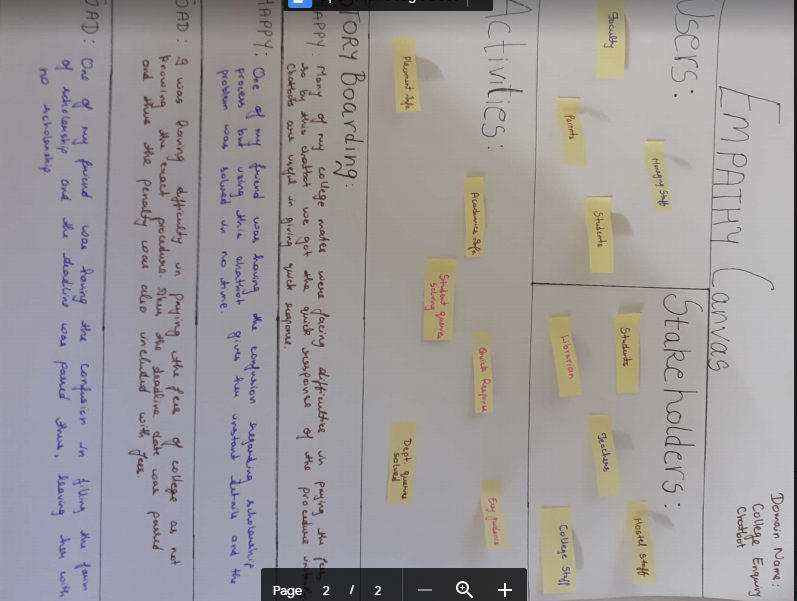 EMPATHY Canvas
Domain Name:
College Enquiry
Chatbot
Users:
Faculty
Parents
Managing Staff
Students
Stakeholders:
Students
Librarian
Teachers
Hostel Staff
College Staff
Activities:
Placement info
Academics info
Student queries
solving
Quick Response
Dept. queries
solved
Easy guidance
STORY Boarding:
HAPPY: Many of my college mates were facing difficulties in paying the fees,
so by this chatbot we got the quick response of the procedure
Chatbots are useful in giving quick response.
HAPPY: One of my friend was having the confusion regarding scholarship
process but using this chatbot gives her instant details and the
problem was solved in no time.
SAD: I was having difficulty in paying the fees of college as not
knowing the exact procedure. the deadline date was passed
and thus the penalty was also included with fees.
SAD: One of my friend was having the confusion in filling the form
of scholarship and the deadline was passed thus, leaving her with
no scholarship.
Page 2 / 2